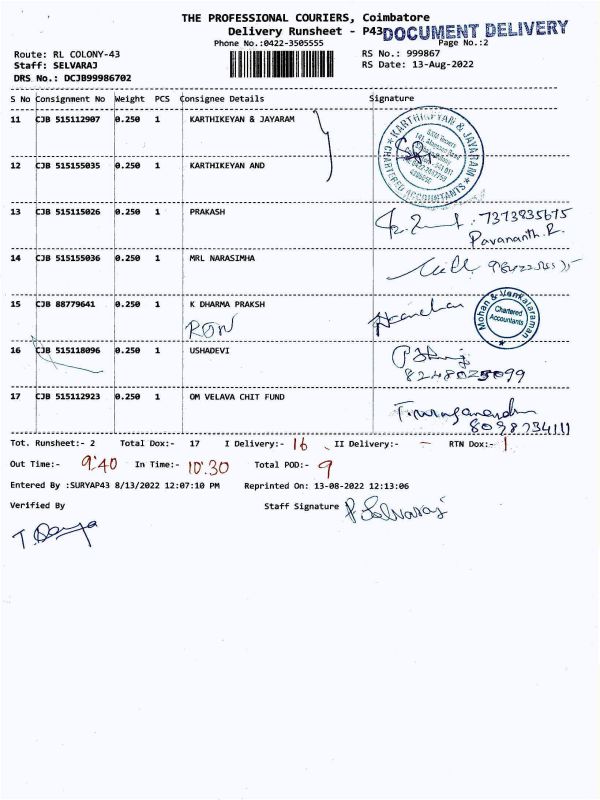 THE PROFESSIONAL COURIERS, Coimbatore
Delivery Runsheet - P43
DOCUMENT DELIVERY
Phone No.:0422-3505555
Page No.:2
Route: RL COLONY-43
RS No.: 999867
Staff: SELVARAJ
RS Date: 13-Aug-2022
DRS No.: DCJB99986702
S No Consignment No Weight PCS Consignee Details Signature
11 CJB 515112907 0.250 1 KARTHIKEYAN & JAYARAM
KARTHIKEYAN & JAYARAM
CHARTERED ACCOUNTANTS
12 CJB 515155035 0.250 1 KARTHIKEYAN AND
13 CJB 515115026 0.250 1 PRAKASH
7373835675
Pavananth.R.
14 CJB 515155036 0.250 1 MRL NARASIMHA
15 CJB 88779641 0.250 1 K DHARMA PRAKSH
Mohan & Venkataraman
Chartered
Accountants
16 CJB 515118096 0.250 1 USHADEVI
8248025099
17 CJB 515112923 0.250 1 OM VELAVA CHIT FUND
8098734111
Tot. Runsheet:- 2 Total Dox:- 17 I Delivery:- 16 II Delivery:- - RTN Dox:- 1
Out Time:- 9:40 In Time:- 10:30 Total POD:- 9
Entered By :SURYAP43 8/13/2022 12:07:10 PM Reprinted On: 13-08-2022 12:13:06
Verified By Staff Signature P Selvaraj